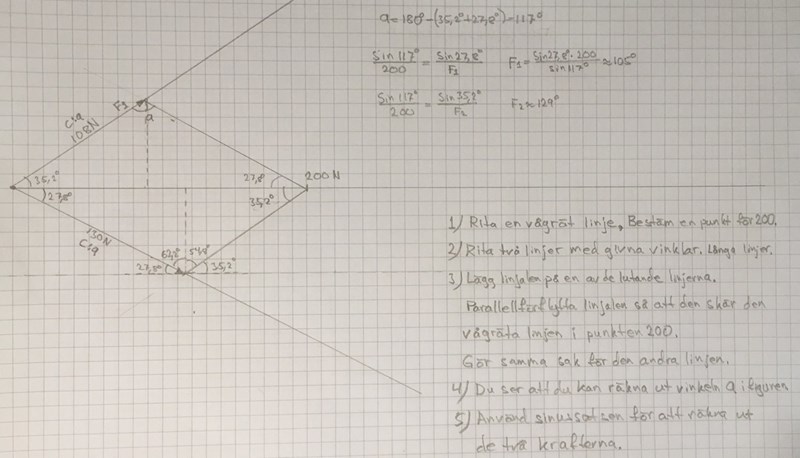 a = 180° - (35,2° + 27,8°) = 117°
Sin 117° / 200 = Sin 27,8° / F1   F1 = Sin 27,8° · 200 / sin 117° ≈ 105°
Sin 117° / 200 = Sin 35,2° / F2   F2 ≈ 129°
F1
a
Cia
108N
35,2°
27,8°
27,8°
35,2°
200 N
130N
Cia
62,2° 54,8°
35,2°
1) Rita en vågrät linje, Bestäm en punkt för 200.
2) Rita två linjer med givna vinklar. Långa linjer.
3) Lägg linjalen på en av de lutande linjerna.
Parallellförflytta linjalen så att den skär den
vågräta linjen i punkten 200.
Gör samma sak för den andra linjen.
4) Du ser att du kan räkna ut vinkeln a i figuren
5) Använd sinussatsen för att räkna ut
de två krafterna.